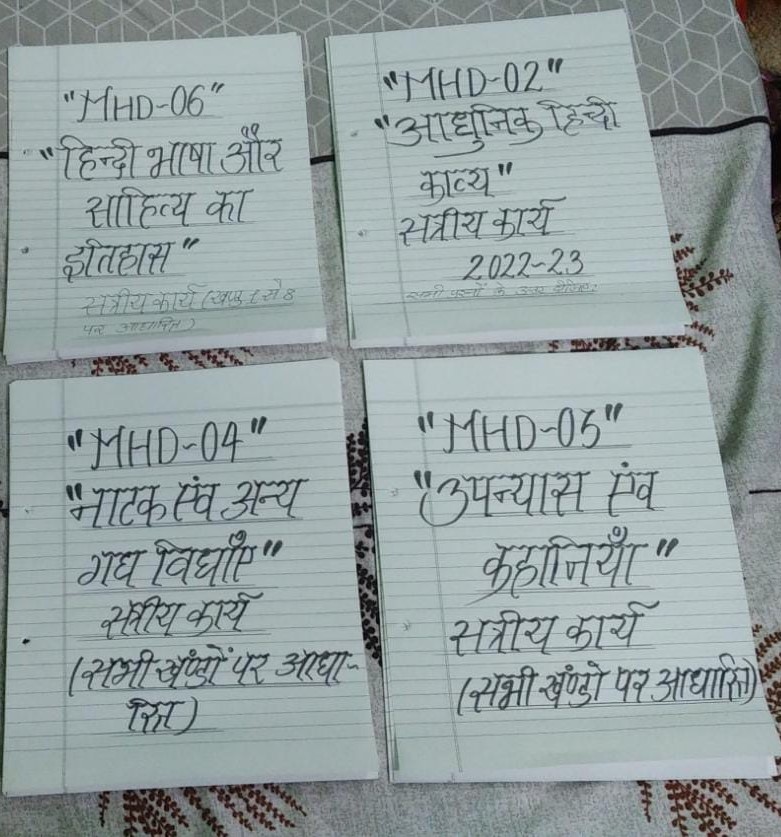 "MHD-06"
"हिन्दी भाषा और
साहित्य का
इतिहास"
सत्रीय कार्य (खण्ड 1 से 8
पर आधारित)
"MHD-02"
"आधुनिक हिन्दी
काव्य"
सत्रीय कार्य
2022-23
सभी प्रश्नों के उत्तर दीजिए:
"MHD-04"
"नाटक एंव अन्य
गद्य विधाएँ"
सत्रीय कार्य
(सभी खण्डों पर आधा-
रित)
"MHD-03"
"उपन्यास एंव
कहानियाँ"
सत्रीय कार्य
(सभी खण्डो पर आधारित)